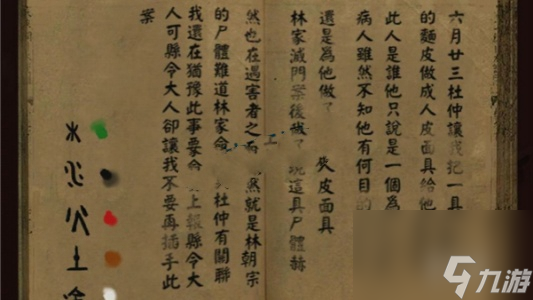 六月廿三杜仲讓我把一具
的麵皮做成人皮面具給他
此人是誰他只說是一個為
病人雖然不知他有何目
還是為他做了 皮面具
林家滅門案後 現這具尸體赫
然也在遇害者之 然就是林朝宗
的尸體難道林家命 杜仲有關聯
我還在猶豫此事要 上報縣令大
人可縣令大人卻讓我不要再插手此
案
木
水
火
土
九游